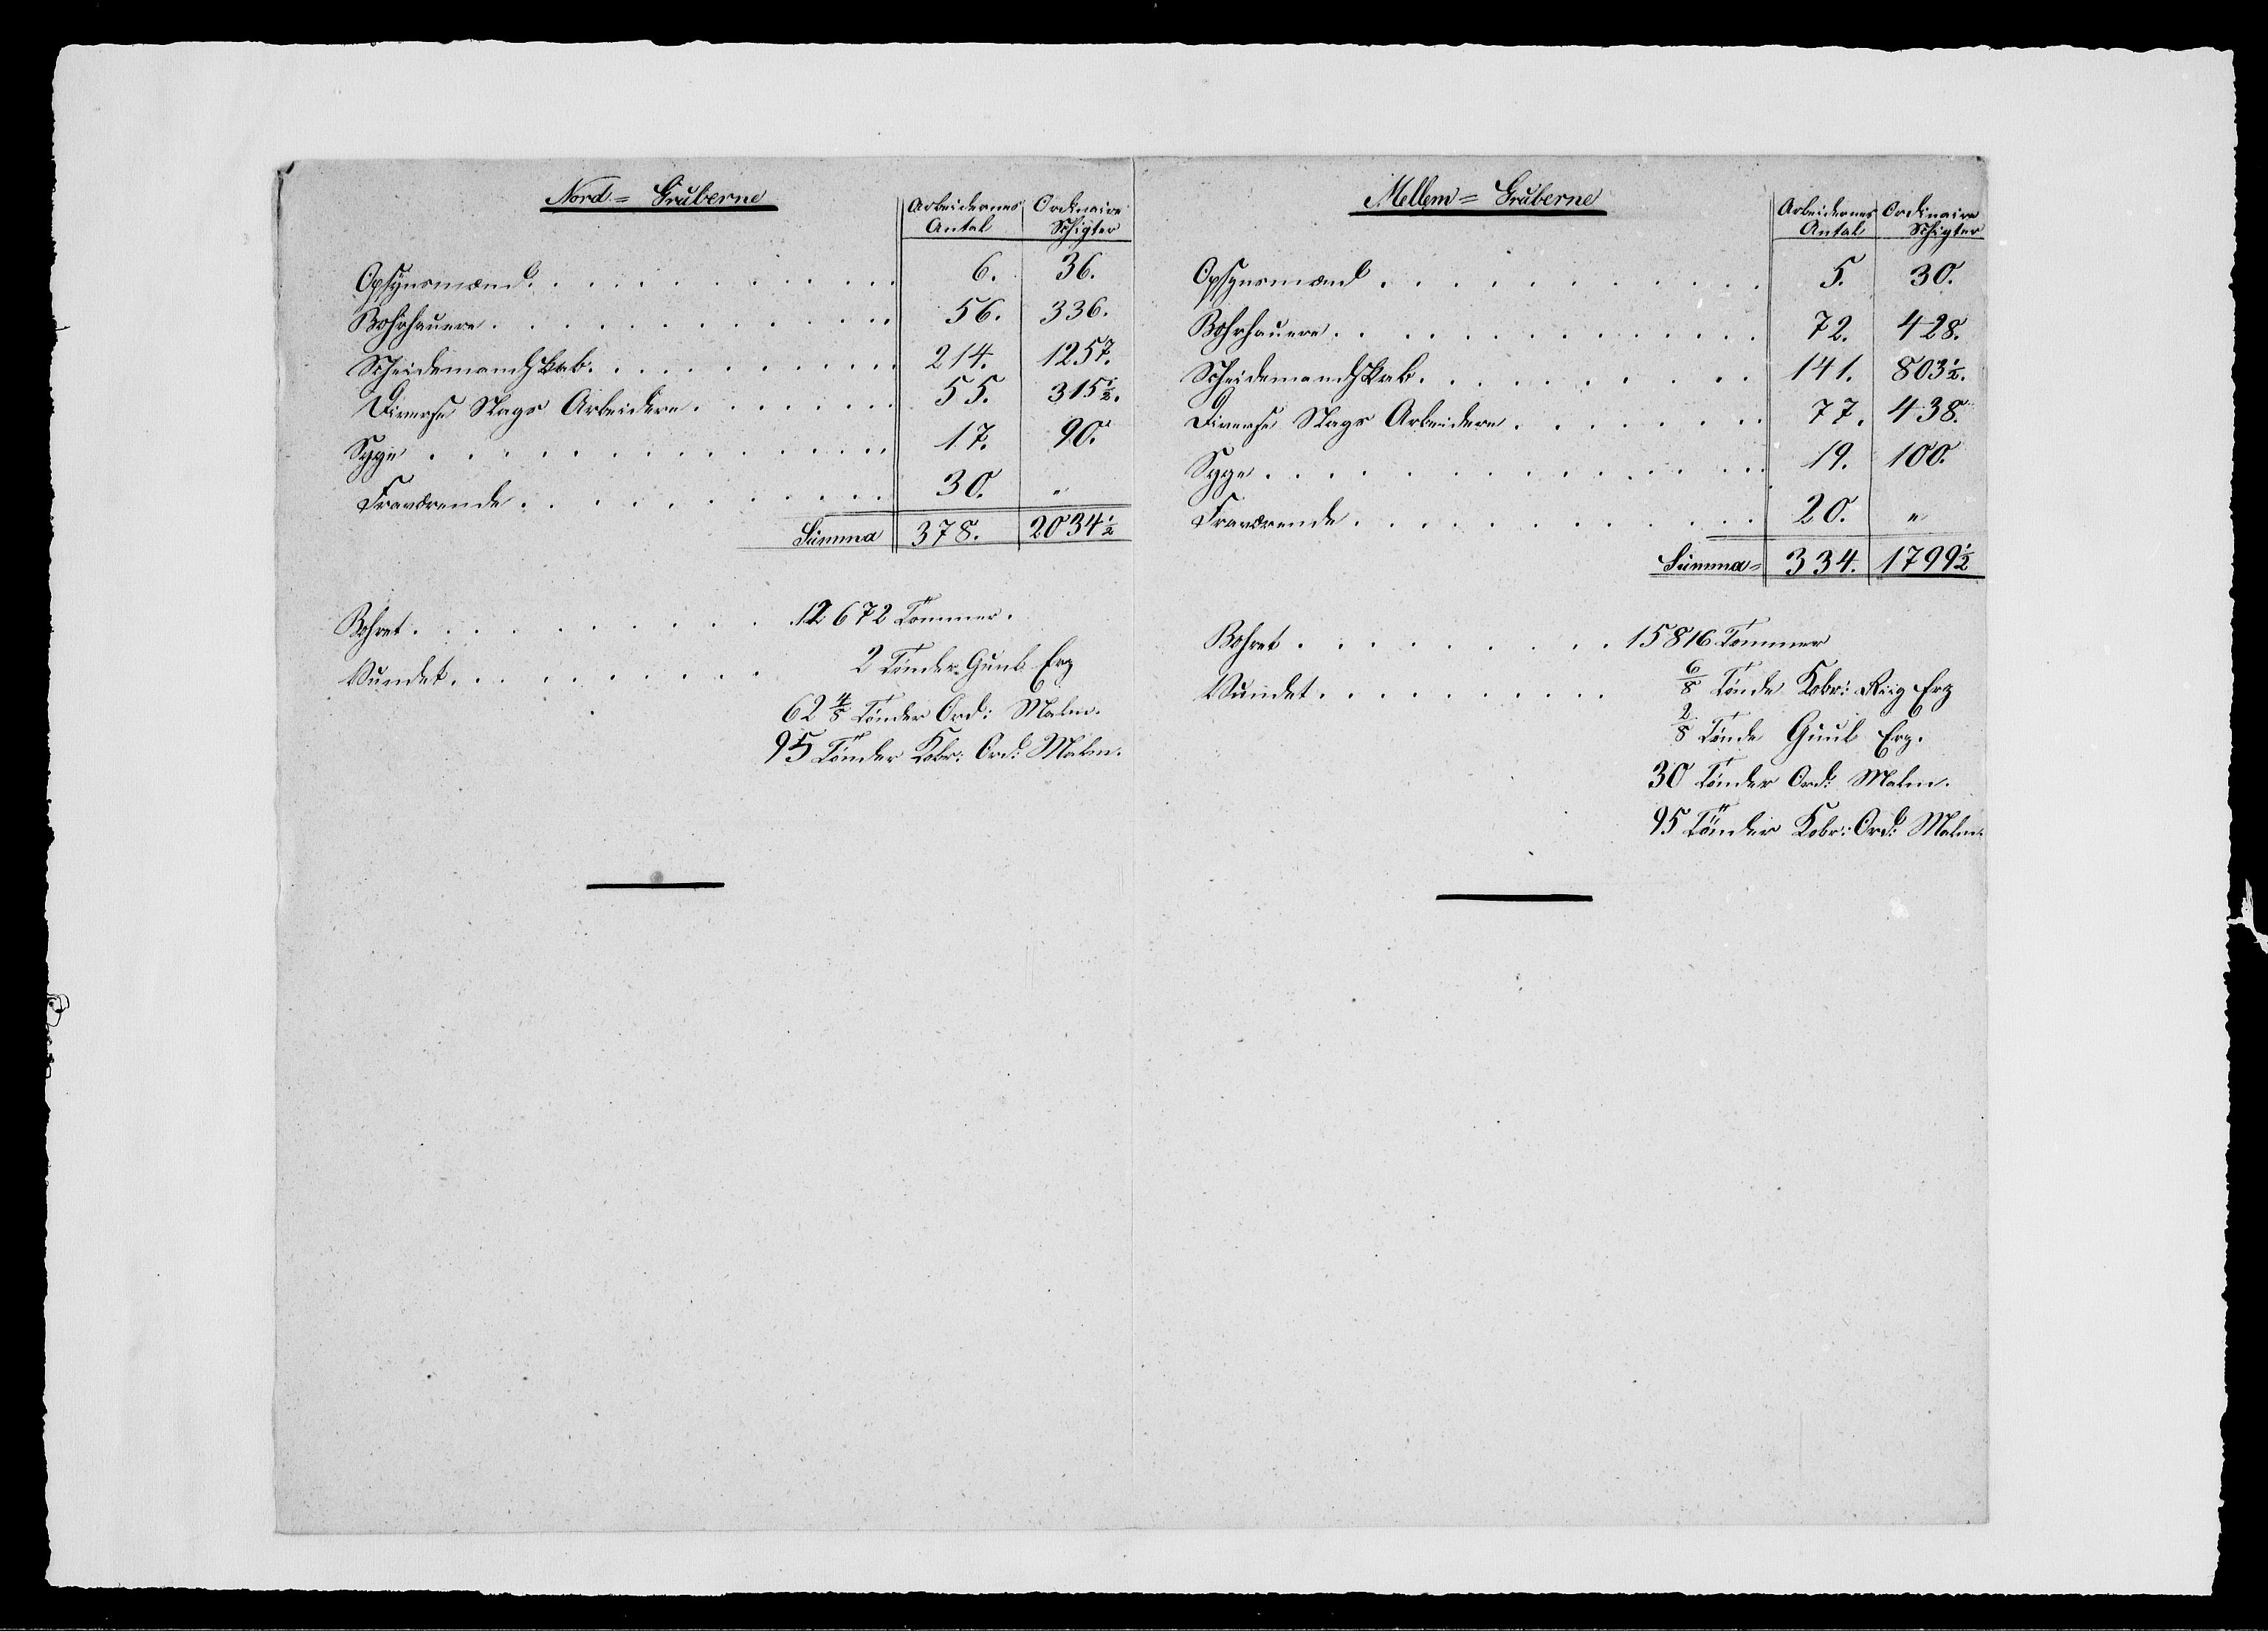 Nord= Gruberne
Arbeidernes Antal | Ordinaire Schigter
Opsynsmænd . . . 6. 36.
Bohrhauere . . . 56. 336.
Scheidemandskab . . . 214. 1257.
Diverse Slags Arbeidere . . . 55. 315½.
Syge . . . 17. 90.
Fraværende . . . 30. "
Summa 378. 2034½
Bohret . . . 12672 Tommer.
Vundet . . . 2 Tønder Guul Erz
62 4/8 Tønder Ord: Malm.
95 Tønder Kobr: Ord: Malm.
Mellem= Gruberne
Arbeidernes Antal | Ordinaire Schigter
Opsynsmænd . . . 5. 30.
Bohrhauere . . . 72. 428.
Scheidemandskab . . . 141. 803½.
Diverse Slags Arbeidere . . . 77. 438.
Syge . . . 19. 100.
Fraværende . . . 20. "
Summa= 334. 1799½
Bohret . . . 15816 Tommer
Vundet . . . 6/8 Tønde Kobr: Riig Erz
2/8 Tønde Guul Erz.
30 Tønder Ord: Malm.
95 Tønder Kobr: Ord: Malm.